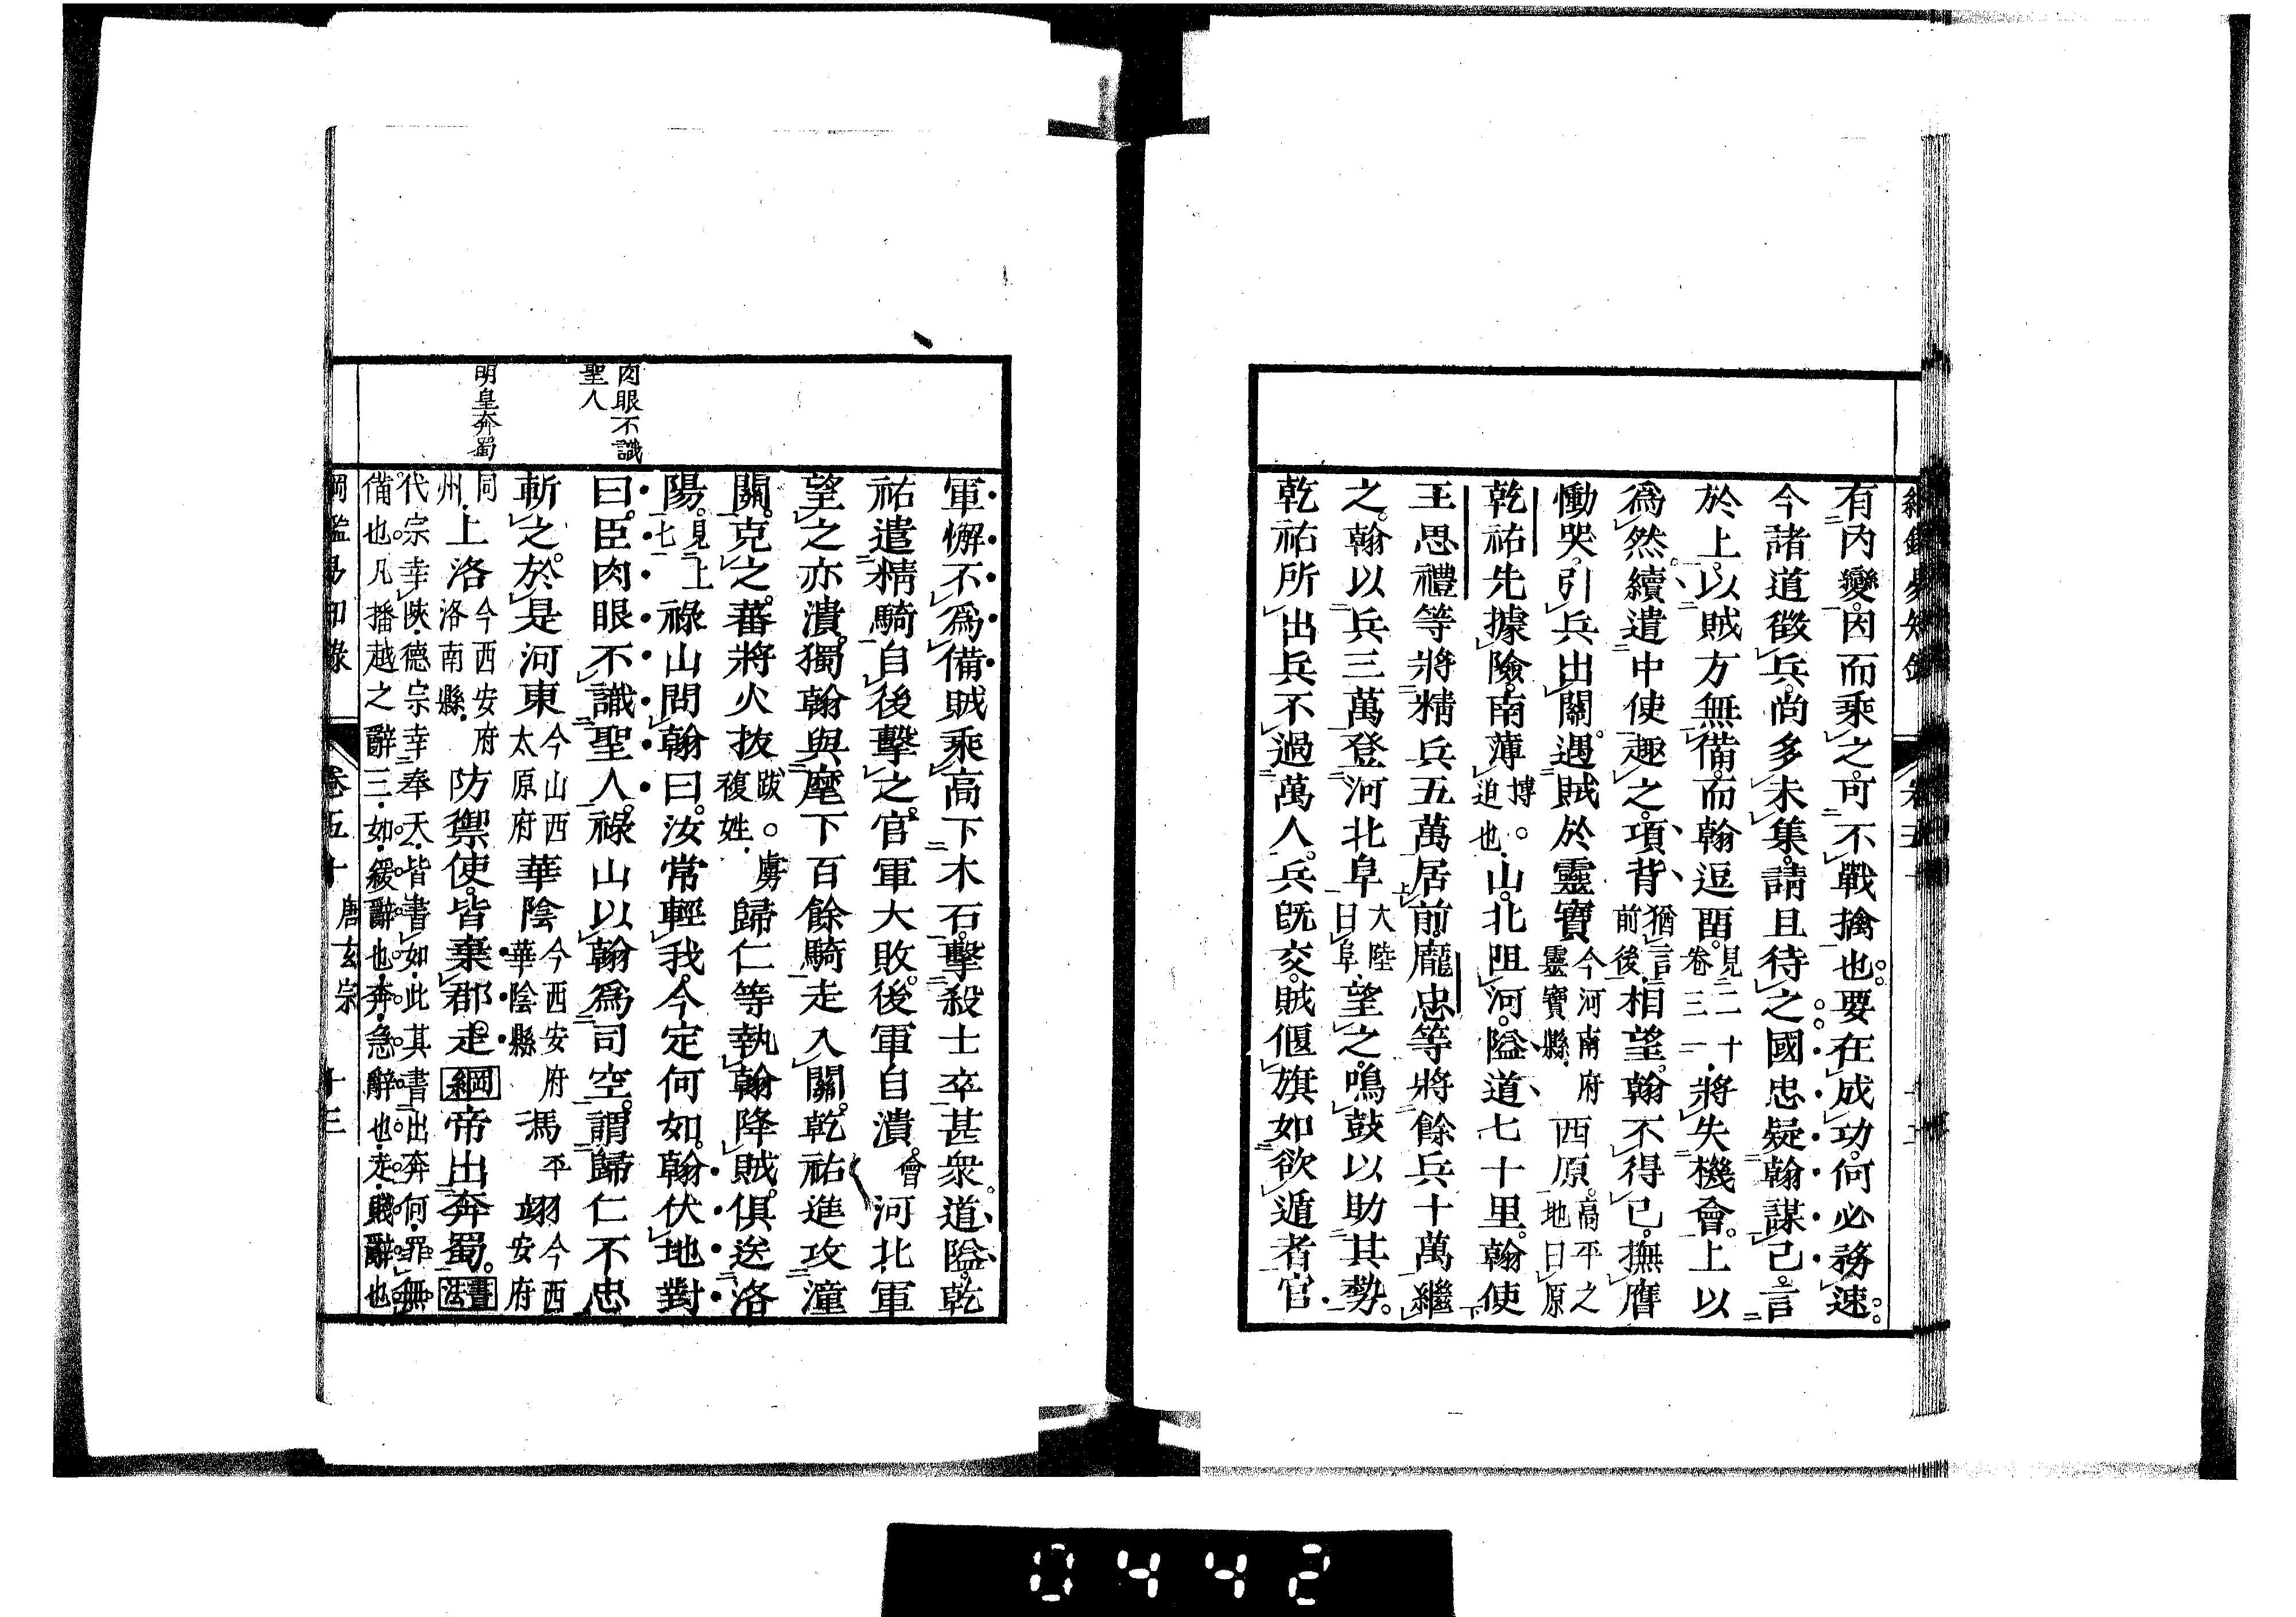 有內變因而乘之可不戰擒也要在成功何必務速
今諸道徵兵尚多未集請且待之國忠疑翰謀己言
於上以賊方無備而翰逗畱見二十卷三一將失機會上以
爲然續遣中使趣之項背猶言前後相望翰不得已撫膺
慟哭引兵出關遇賊於靈寶今河南府靈寶縣西原高平之地曰原
乾祐先據險南薄博迫也山北阻河隘道七十里翰使
王思禮等將精兵五萬居前龐忠等將餘兵十萬繼
之翰以兵三萬登河北阜大陸曰阜望之鳴鼓以助其勢
乾祐所出兵不過萬人兵既交賊偃旗如欲遁者官
軍懈不爲備賊乘高下木石擊殺士卒甚衆道隘乾
祐遣精騎自後擊之官軍大敗後軍自潰會河北軍
望之亦潰獨翰與麾下百餘騎走入關乾祐進攻潼
關克之蕃將火拔跋○虜複姓歸仁等執翰降賊俱送洛
陽見上七一祿山問翰曰汝常輕我今定何如翰伏地對
曰臣肉眼不識聖人祿山以翰爲司空謂歸仁不忠
肉眼不識
聖人
斬之於是河東今山西太原府華陰今西安府華陰縣馮平翊今西安府
同州上洛今西安府洛南縣防禦使皆棄郡走綱帝出奔蜀書法
明皇奔蜀
代宗幸陝德宗幸奉天皆書如此其書出奔何罪無
備也凡播越之辭三如緩辭也奔急辭也走賤辭也
綱鑑易知錄 卷五十 唐玄宗 十三
0442